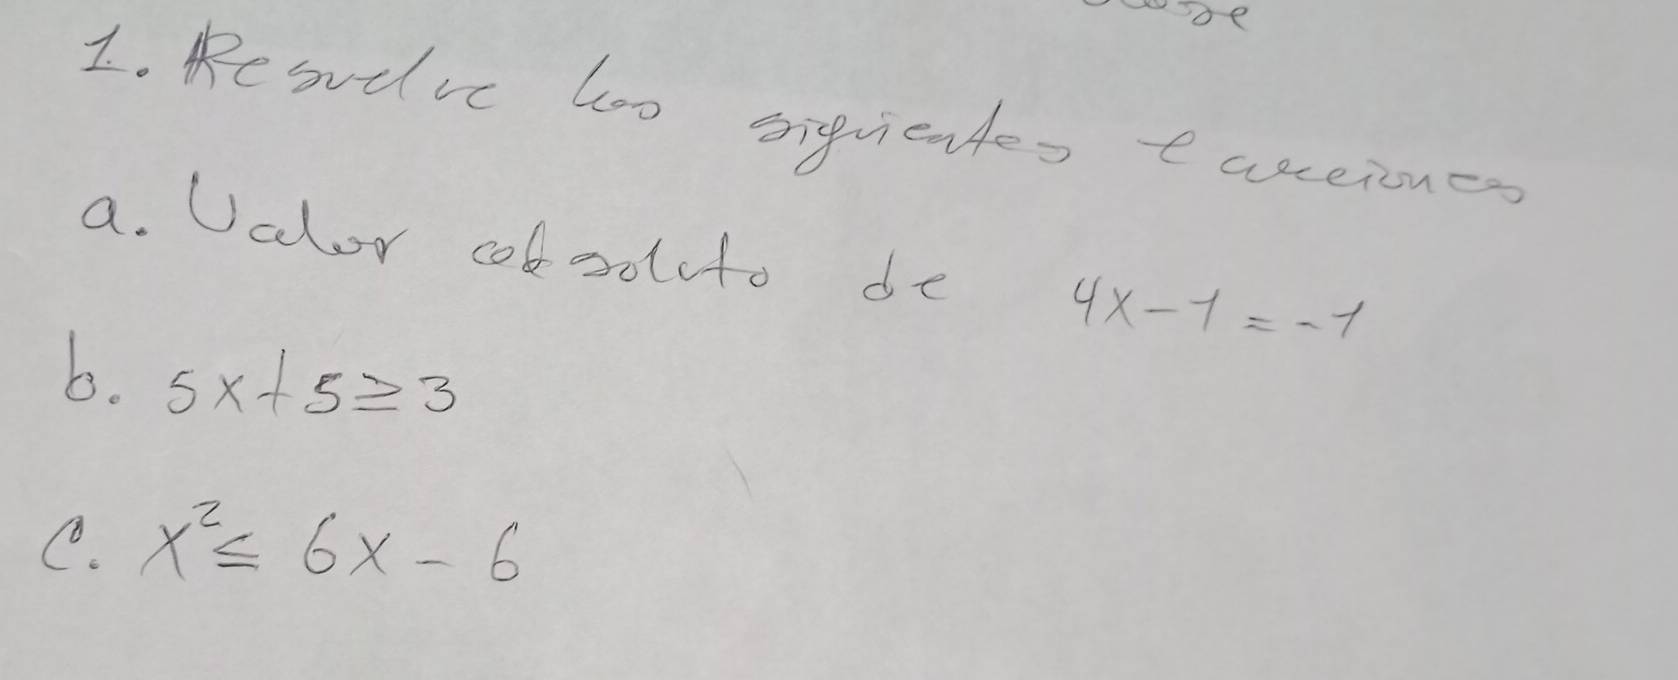 1. Resuelve las siguientes ecuaciones
a. Valor absoluto de 4x-1=-1
b. 5x+5≥3
c. x²≤ 6x-6